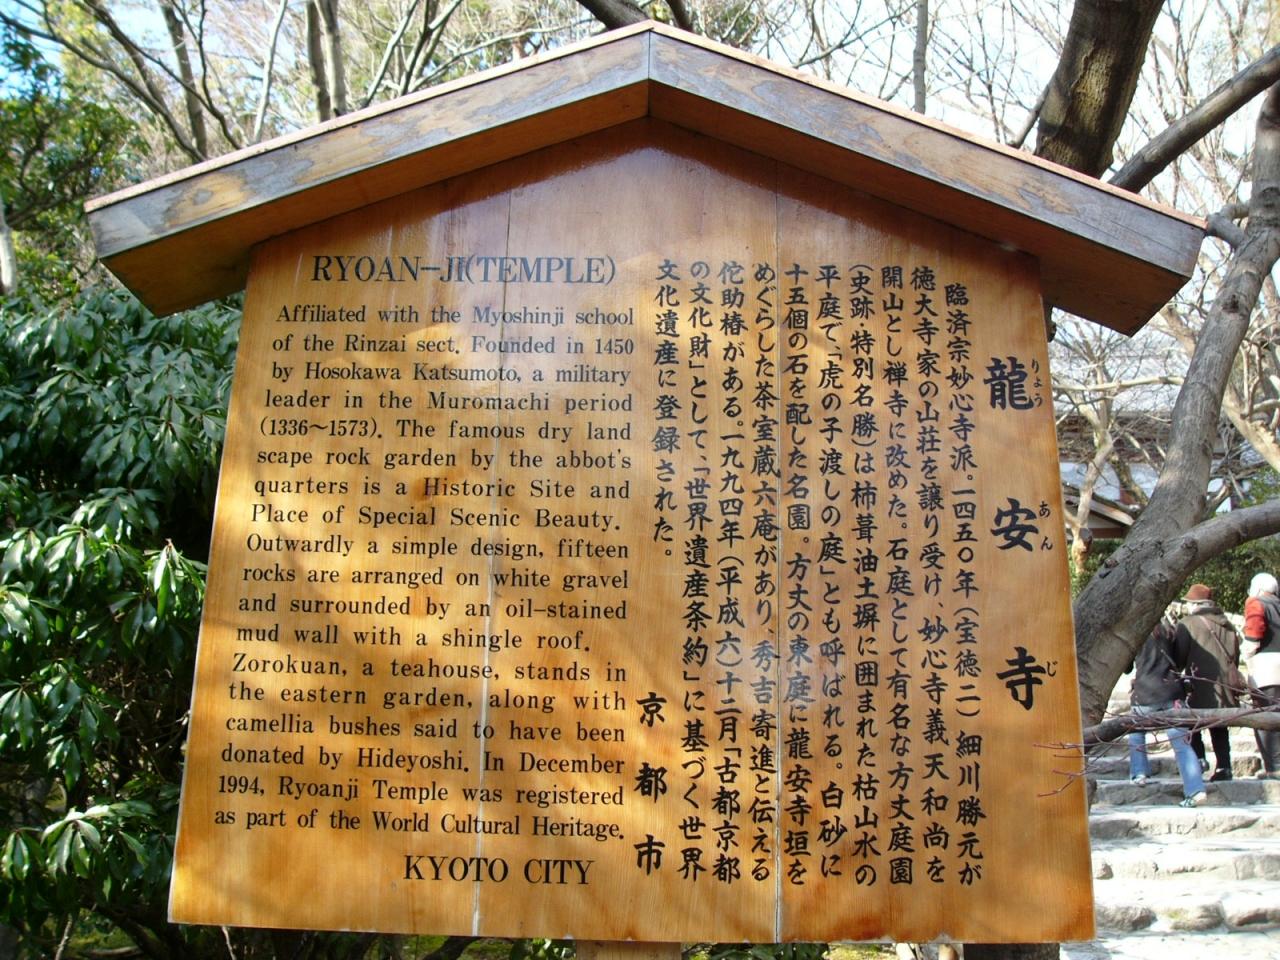 RYOAN-JI(TEMPLE)
Affiliated with the Myoshinji school
of the Rinzai sect. Founded in 1450
by Hosokawa Katsumoto, a military
leader in the Muromachi period
(1336~1573). The famous dry land
scape rock garden by the abbot's
quarters is a Historic Site and
Place of Special Scenic Beauty.
Outwardly a simple design, fifteen
rocks are arranged on white gravel
and surrounded by an oil-stained
mud wall with a shingle roof.
Zorokuan, a teahouse, stands in
the eastern garden, along with
camellia bushes said to have been
donated by Hideyoshi. In December
1994, Ryoanji Temple was registered
as part of the World Cultural Heritage.
KYOTO CITY
龍安寺
りょうあんじ
臨済宗妙心寺派。一四五〇年(宝徳二)細川勝元が
徳大寺家の山荘を譲り受け、妙心寺義天和尚を
開山とし禅寺に改めた。石庭として有名な方丈庭園
(史跡・特別名勝)は柿葺油土塀に囲まれた枯山水の
平庭で、「虎の子渡しの庭」とも呼ばれる。白砂に
十五個の石を配した名園。方丈の東庭に龍安寺垣を
めぐらした茶室蔵六庵があり、秀吉寄進と伝える
侘助椿がある。一九九四年(平成六)十二月「古都京都
の文化財」として、「世界遺産条約」に基づく世界
文化遺産に登録された。
京都市